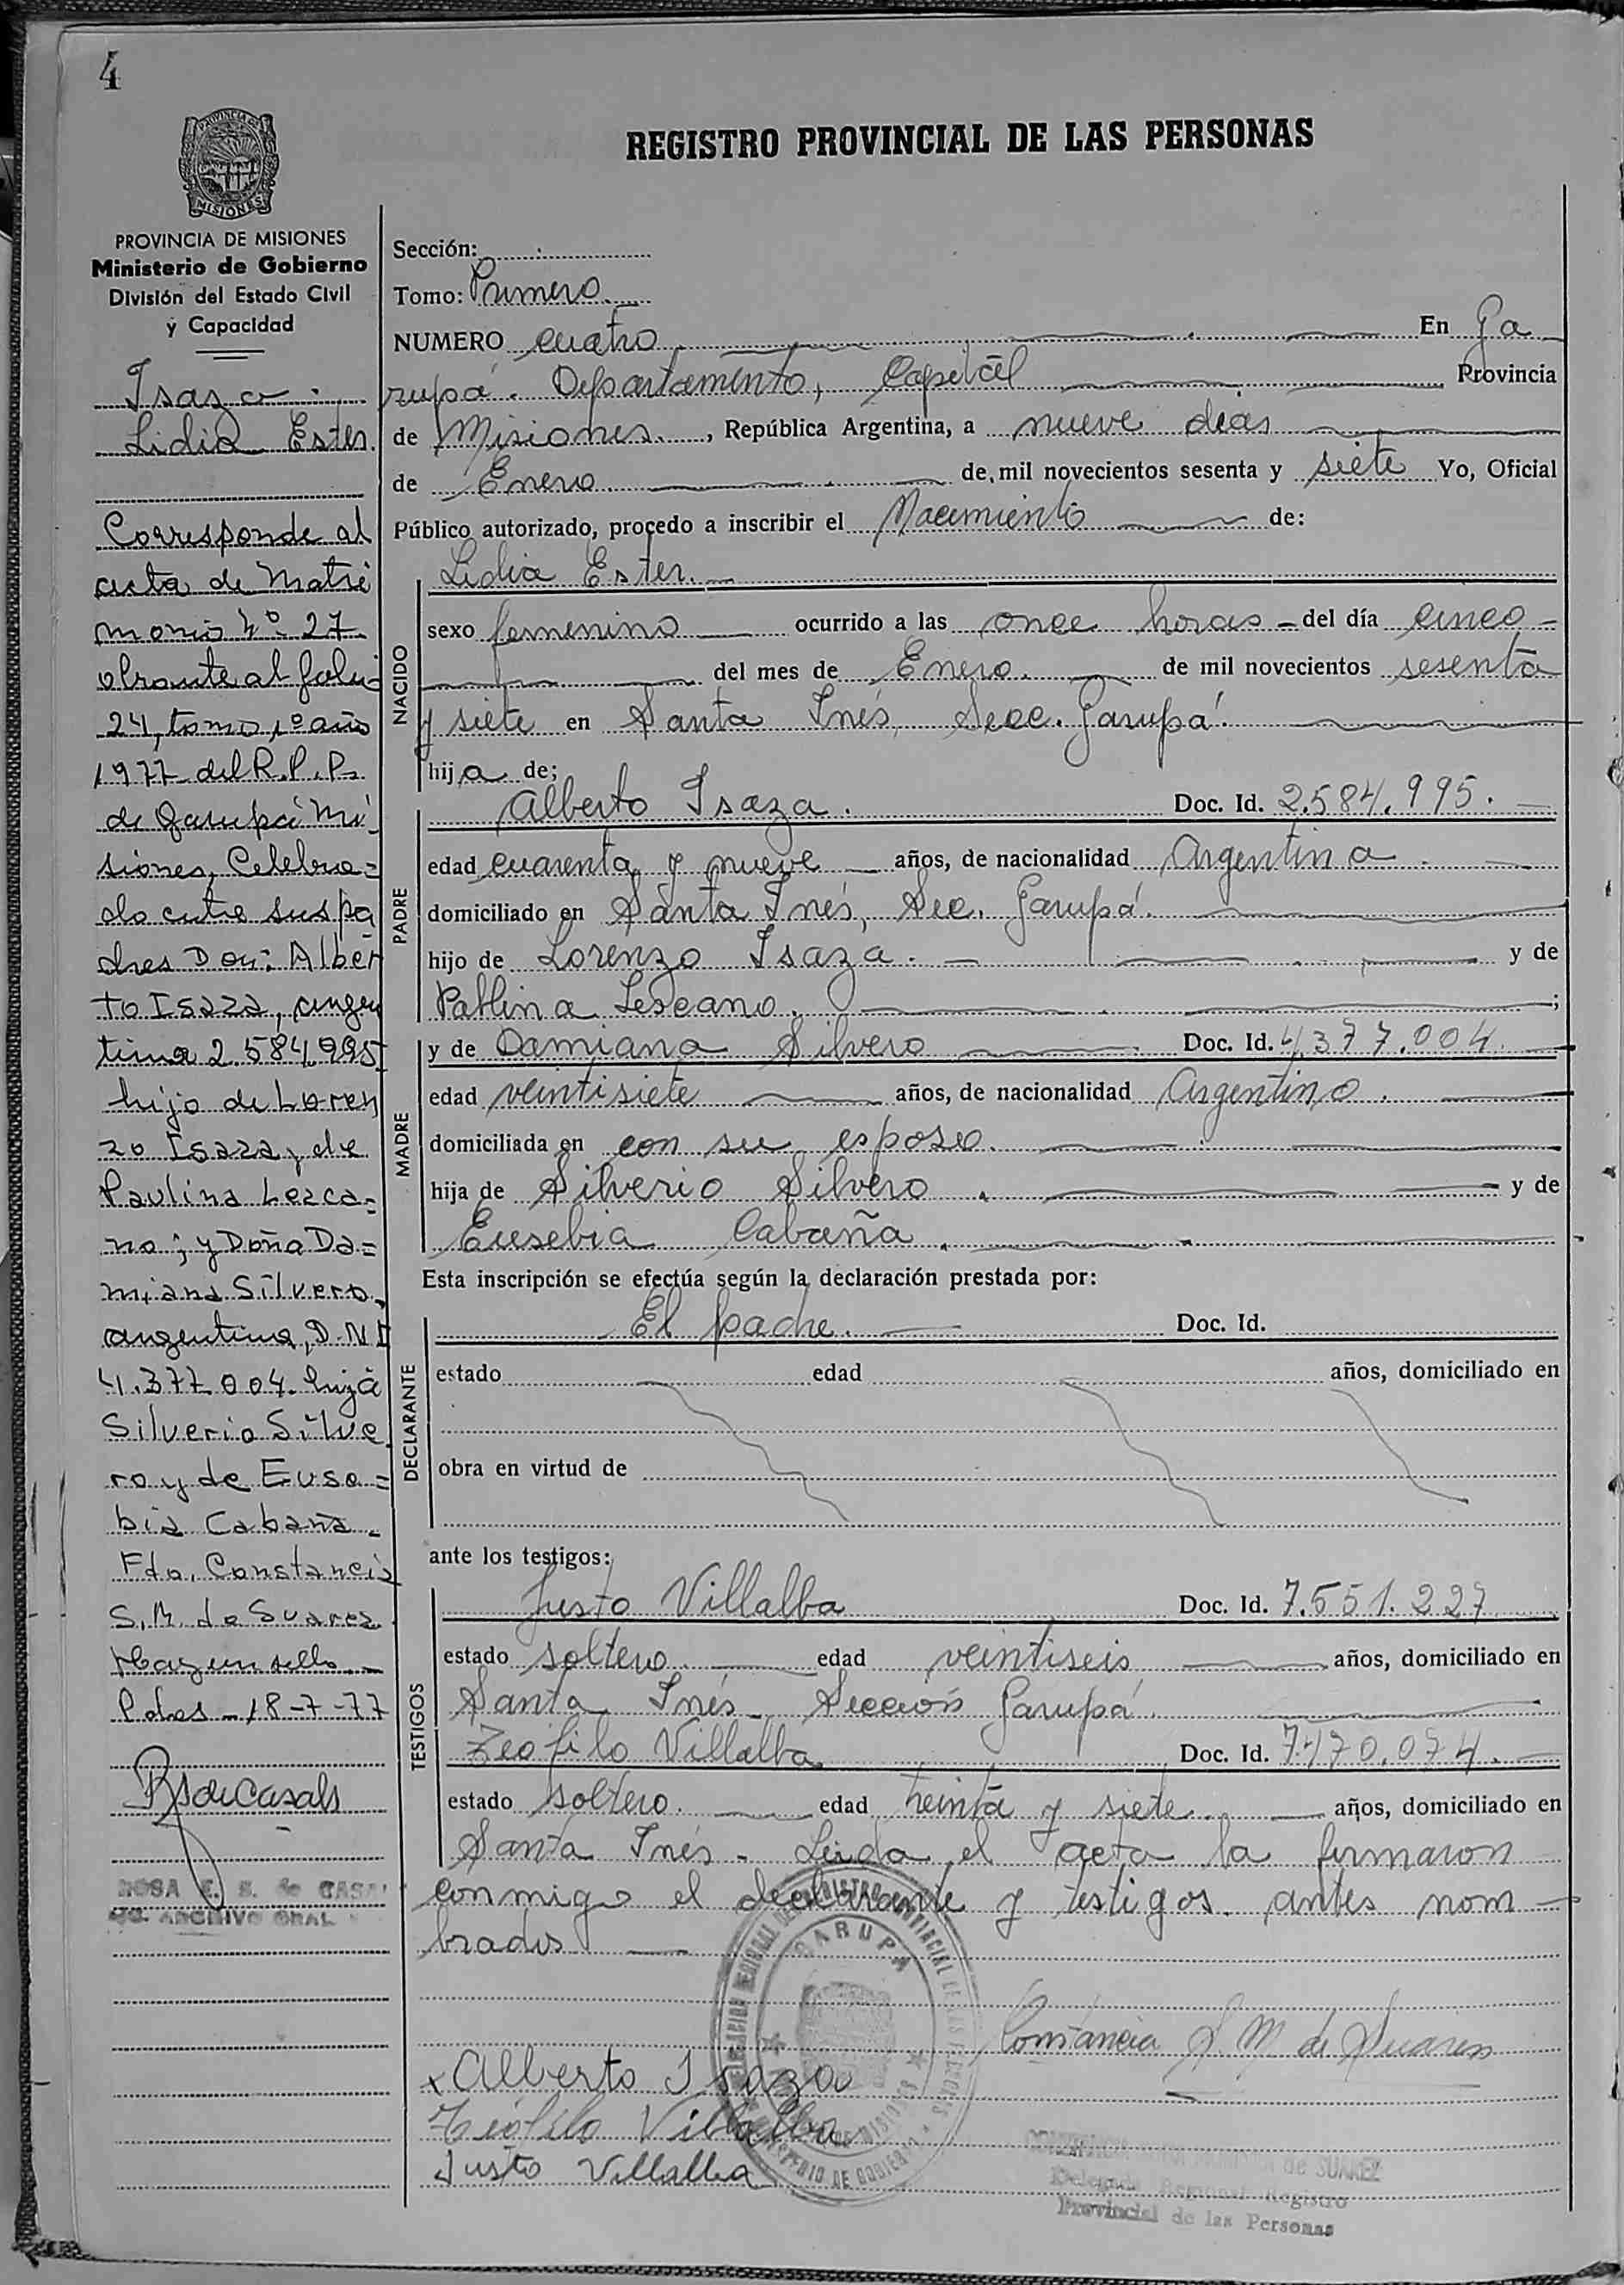 4
PROVINCIA DE
MISIONES
REGISTRO PROVINCIAL DE LAS PERSONAS
PROVINCIA DE MISIONES
Ministerio de Gobierno
División del Estado Civil
y Capacidad
Isaza
Lidia Ester.
Corresponde al
acta de Matri
monio Nº 27
obrante al folio
24, tomo 1º año
1977 del R.P.P.
de Garupá Mi-
siones, Celebra=
do entre sus pa
dres Don: Alber
to Isaza, argen
tino 2.584.995
hijo de Loren
zo Isaza y de
Paulina Lezca=
no; y Doña Da=
miana Silvero,
argentina, D.N.I
4.377.004. hija
Silverio Silve
ro y de Euse=
bia Cabaña.
Fdo. Constancia
S.M. de Suarez
Hay un sello.-
Pdas - 18-7-77
ROSA E. S. de CASA
ARCHIVO GRAL
Sección:
Tomo: Primero.
NUMERO cuatro En Ga
rupá. Departamento, Capital Provincia
de Misiones. , República Argentina, a nueve dias
de Enero de mil novecientos sesenta y siete Yo, Oficial
Público autorizado, procedo a inscribir el Nacimiento de:
NACIDO
Lidia Ester.
sexo femenino ocurrido a las once horas - del día cinco -
del mes de Enero. de mil novecientos sesenta
y siete en Santa Inés, Secc. Garupá.
hija de;
PADRE
Alberto Isaza. Doc. Id. 2.584.995.
edad cuarenta y nueve años, de nacionalidad Argentina.
domiciliado en Santa Inés, Sec. Garupá.
hijo de Lorenzo Isaza. y de
Pablina Lescano. ;
MADRE
y de Damiana Silvero Doc. Id. 4.377.004.
edad veintisiete años, de nacionalidad Argentina.
domiciliada en con su esposo.
hija de Silverio Silvero. y de
Eusebia Cabaña.
Esta inscripción se efectúa según la declaración prestada por:
DECLARANTE
El padre. Doc. Id.
estado edad años, domiciliado en
obra en virtud de
ante los testigos:
TESTIGOS
Justo Villalba Doc. Id. 7.551.227
estado soltero. edad veintiseis años, domiciliado en
Santa Inés - Sección Garupá.
Zeofilo Villalba Doc. Id. 7.470.074.
estado soltero. edad treinta y siete. años, domiciliado en
Santa Inés - Leida el acta la firmaron
conmigo el declarante y testigos antes nom
brados
GARUPA
MINISTERIO DE GOBIERNO
Constancia S. M. de Suarez
x Alberto Isaza
Teófilo Villalba
Justo Villalba
de SUAREZ
Delegada Regional Registro
Provincial de las Personas